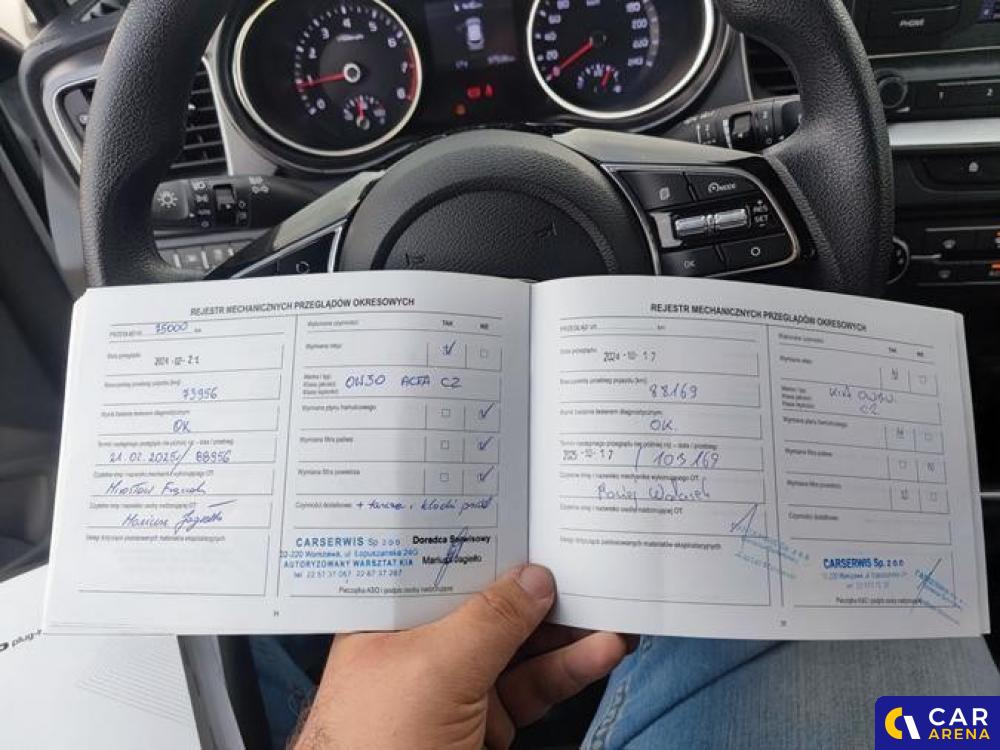 PHONE
1
2
MODE
RES
SET
OK
REJESTR MECHANICZNYCH PRZEGLĄDÓW OKRESOWYCH
PRZEGLĄD VII 75000 km
Data przeglądu:
2024 -02- 21
Rzeczywisty przebieg pojazdu (km):
73956
Wynik badania testerem diagnostycznym:
OK
Termin następnego przeglądu nie później niż – data / przebieg:
21.02.2025/ 88956
Czytelne imię i nazwisko mechanika wykonującego OT:
Mirosław
Czytelne imię i nazwisko osoby nadzorującej OT:
Mariusz Jagiełło
Uwagi dotyczące zastosowanych materiałów eksploatacyjnych:
Wykonane czynności: TAK NIE
Wymiana oleju:
Marka i typ:
Klasa jakości:
Klasa lepkości:
0W30 ACEA C2
Wymiana płynu hamulcowego:
Wymiana filtra paliwa:
Wymiana filtra powietrza:
Czynności dodatkowe: + tarcze i klocki przód
CARSERWIS Sp. z o o
02-220 Warszawa, ul. Łopuszańska 24G
AUTORYZOWANY WARSZTAT KIA
Doradca Serwisowy
Mariusz Jagiełło
Pieczątka ASO i podpis osoby nadzorującej
REJESTR MECHANICZNYCH PRZEGLĄDÓW OKRESOWYCH
km
Data przeglądu:
2024 -10- 17
Rzeczywisty przebieg pojazdu (km):
88169
Wynik badania testerem diagnostycznym:
OK.
Termin następnego przeglądu nie później niż – data / przebieg:
2025 -10- 17 / 103169
Czytelne imię i nazwisko mechanika wykonującego OT:
Czytelne imię i nazwisko osoby nadzorującej OT:
Uwagi dotyczące zastosowanych materiałów eksploatacyjnych:
Wykonane czynności: TAK NIE
Wymiana oleju:
Marka i typ:
Klasa jakości:
Klasa lepkości:
C2
Wymiana płynu hamulcowego:
Wymiana filtra paliwa:
Wymiana filtra powietrza:
Czynności dodatkowe:
CARSERWIS Sp. z o o
Pieczątka ASO i podpis osoby nadzorującej
CAR
ARENA